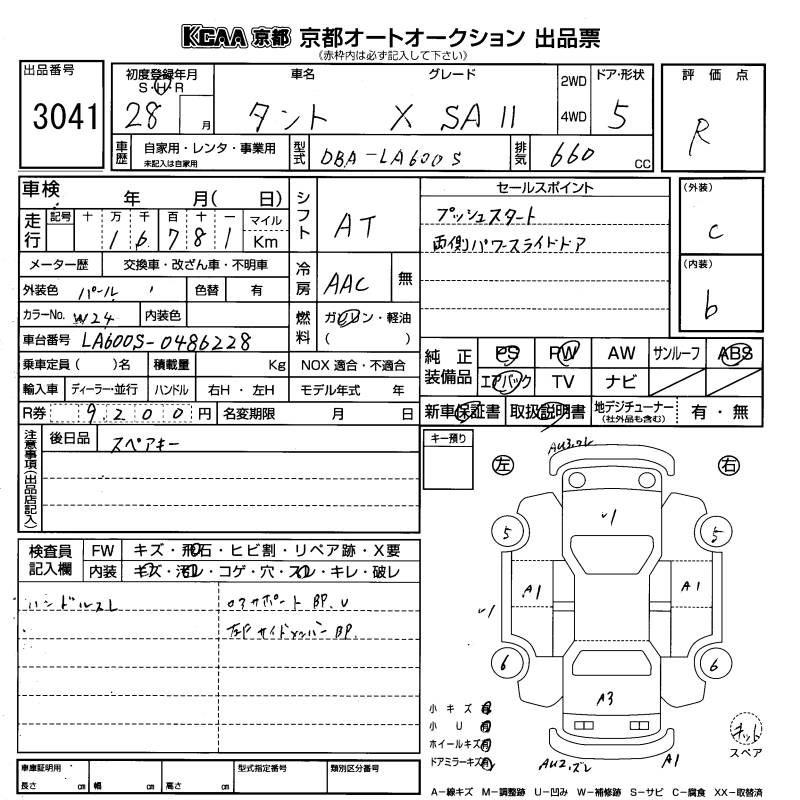 KCAA 京都 京都オートオークション 出品票
(赤枠内は必ず記入して下さい)
出品番号
3041
初度登録年月
S・H・R
28 月
車名
タント
グレード
X SAⅡ
2WD
4WD
ドア・形状
5
評価点
R
車歴
自家用・レンタ・事業用
未記入は自家用
型式
DBA-LA600S
排気
660 CC
車検 年 月( 日)
走行
記号 十 万 千 百 十 一
1 6 7 8 1
マイル
Km
シフト
AT
セールスポイント
プッシュスタート
両側パワースライドドア
(外装)
C
(内装)
b
メーター歴 交換車・改ざん車・不明車
外装色 パール 色替 有
冷房
AAC 無
カラーNo. W24 内装色
燃料
ガソリン・軽油
( )
車台番号 LA600S-0486228
乗車定員 ( )名 積載量 Kg NOX 適合・不適合
輸入車 ディーラー・並行 ハンドル 右H・左H モデル年式 年
R券 9200円 名変期限 月 日
純正装備品
PS PW AW サンルーフ ABS
エアバック TV ナビ
新車保証書 取扱説明書 地デジチューナー 有・無
(社外品も含む)
注意事項(出品店記入)
後日品 スペアキー
キー預り
左
右
検査員記入欄
FW キズ・飛石・ヒビ割・リペア跡・X要
内装 キズ・汚レ・コゲ・穴・スレ・キレ・破レ
ハンドルスレ
コアサポート BP.U
左F サイドメンバー BP.
AU3.ズレ
U1
5
5
A1
A1
U1
6
6
A3
AU2.ズレ
A1
小キズ 有
小U 有
ホイールキズ 有
ドアミラーキズ 有
キット
スペア
車庫証明用
長さ cm 幅 cm 高さ cm
型式指定番号
類別区分番号
A-線キズ M-調整跡 U-凹み W-補修跡 S-サビ C-腐食 XX-取替済